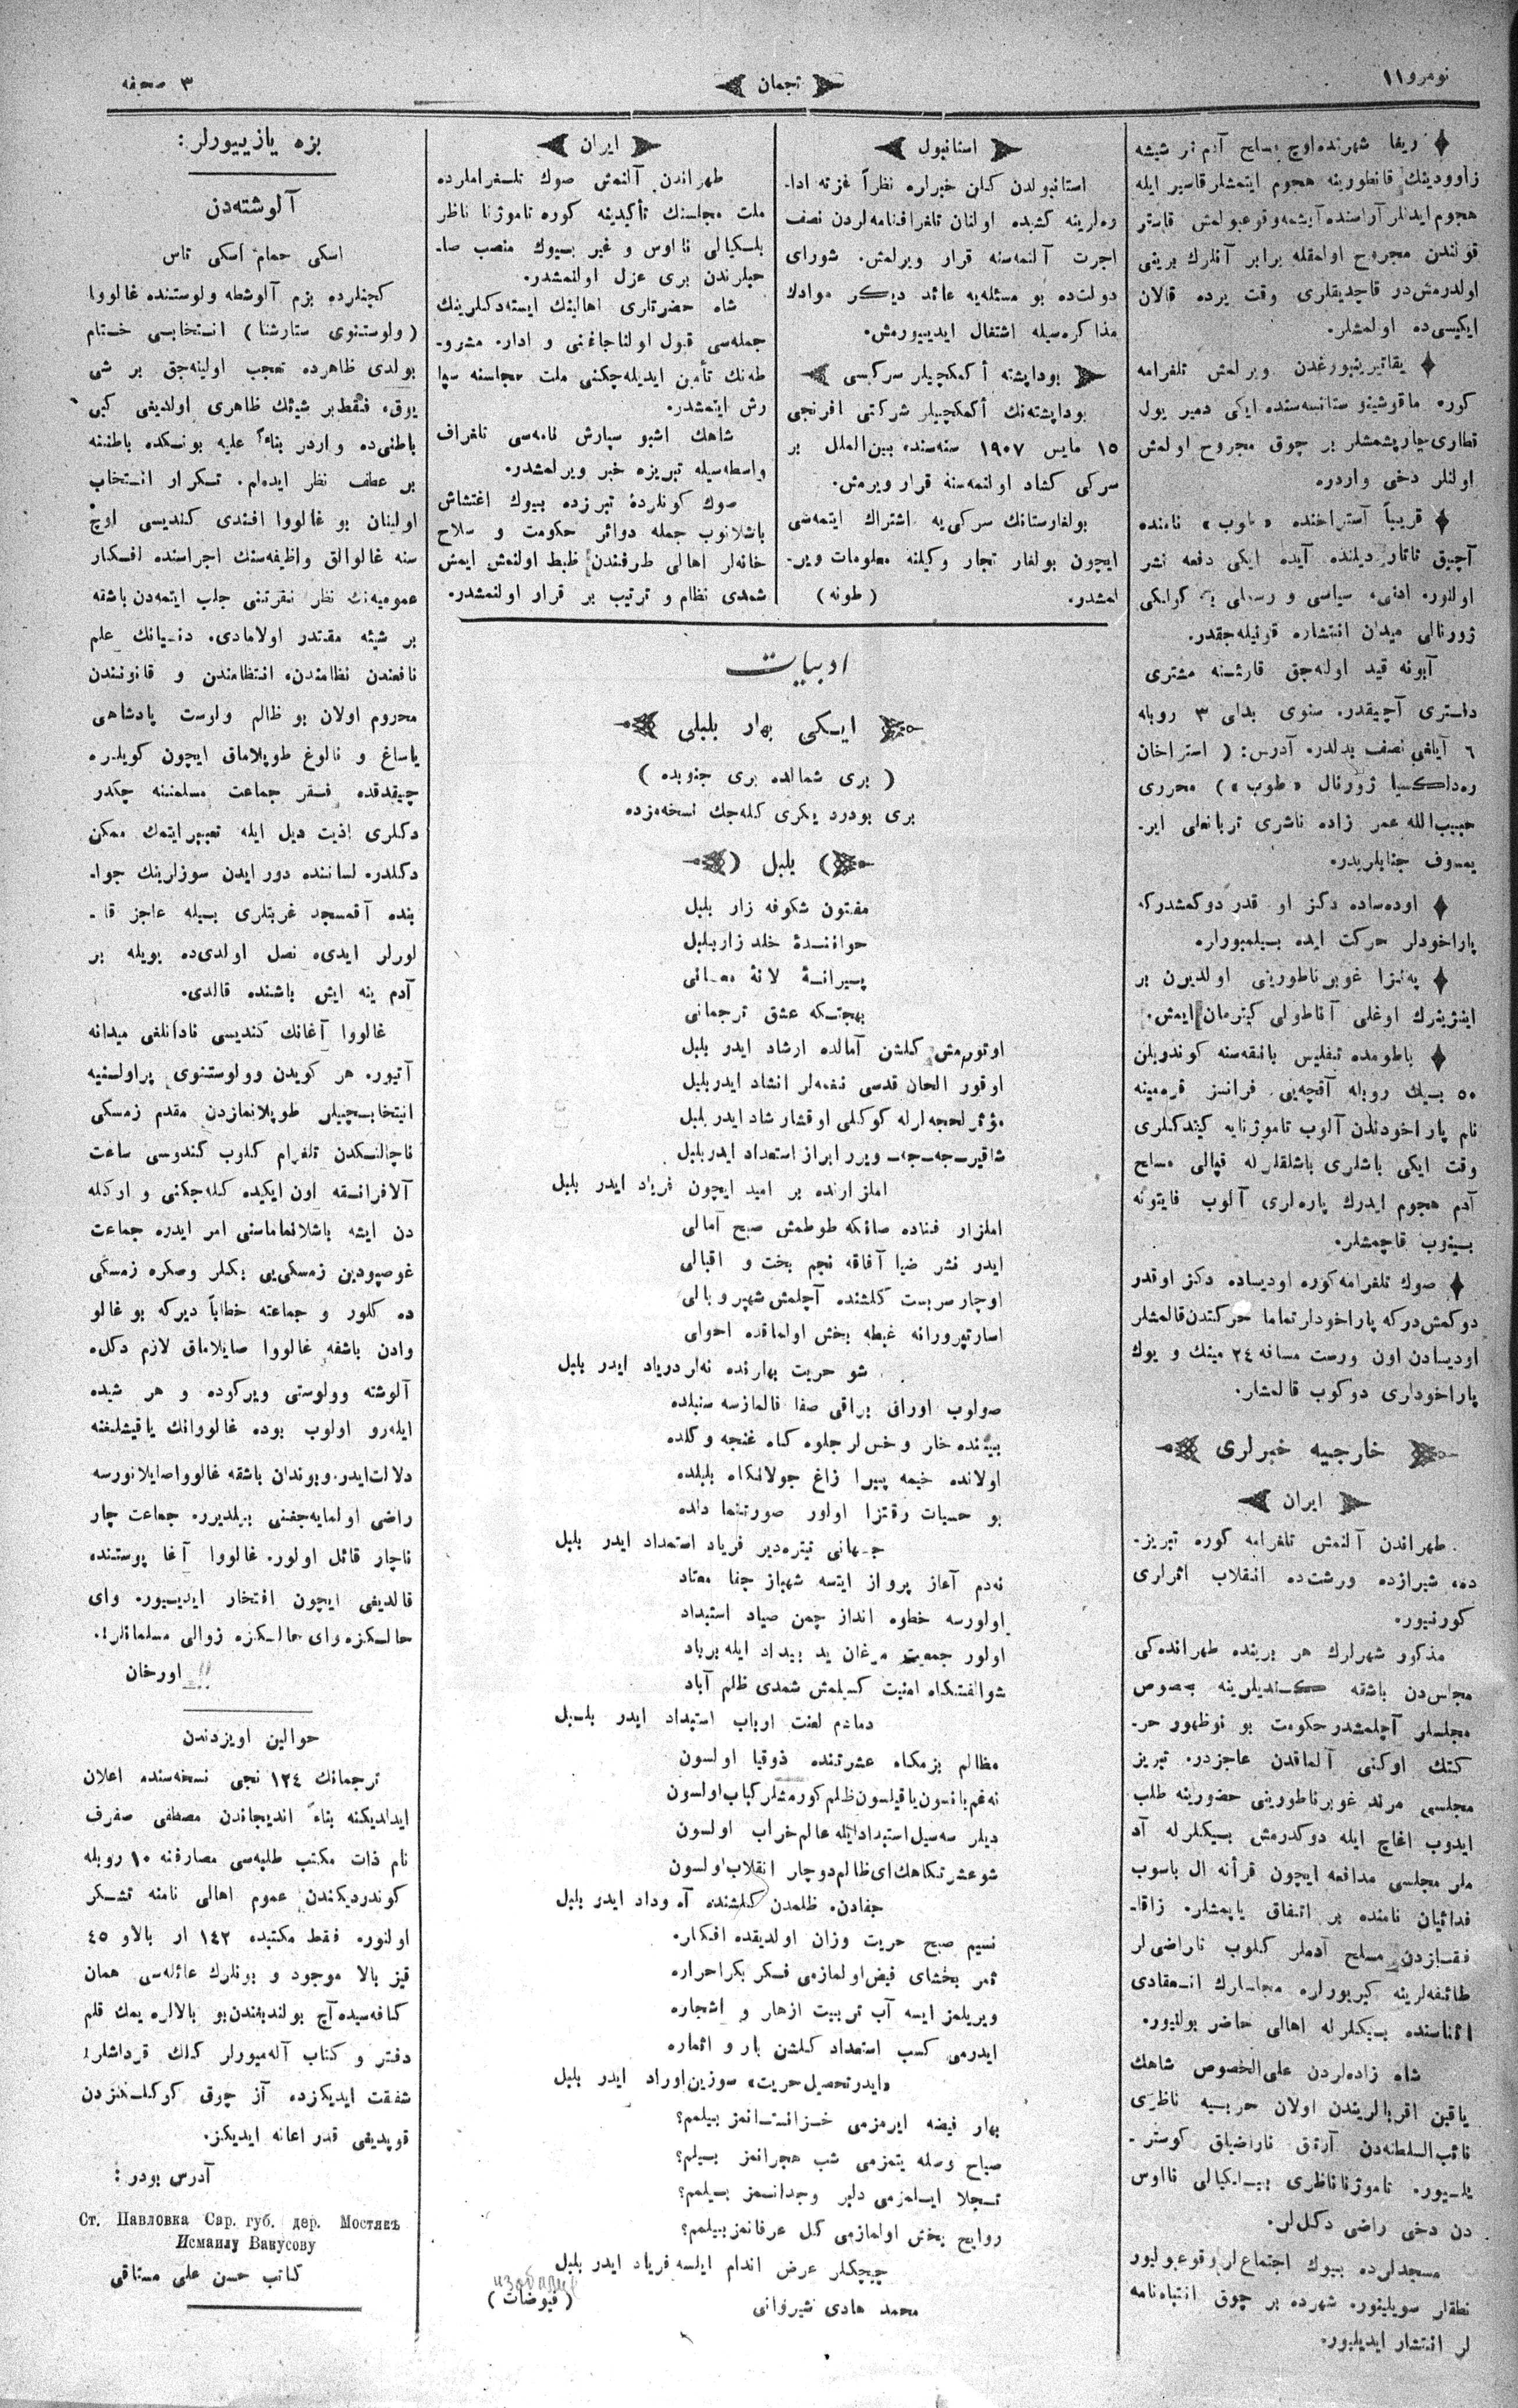 نومرو ١١
ترجمان
٣ صحیفه
ریغا شهرنده اوچ مسلح آدم بر شیشه
زاوودینك قانطورینه هجوم ایتمشلر قاسیر ایله
هجوم ایدنلر آراسنده آتیشمه وقوعبولمش قاسیر
قولندن مجروح اولمقله برابر آنلرك برینی
اولدرمش‌در قاچدیقلری وقت یرده قالان
ایکیسی‌ده اولمشلر.
یقاتیرینبورغدن ویرلمش تلغرامه
کوره ماقوشینو ستانسه‌سنده ایکی دمیر یول
قطاری چارپشمشلر بر چوق مجروح اولمش
اولنلر دخی واردر.
قریباً آستراخنده «طوپ» نامنده
آچیق تاتار دیلنده آیده ایکی دفعه نشر
اولنور. ادبی، سیاسی و رسملی بر کولکی
ژورنالی میدان انتشاره قوئیله‌جقدر.
آبونه قید اوله‌جق قارشنه مشتری
دفتری آچیقدر. سنوی بدلی ٣ روبله
٦ آیلغی نصف بدلدر. آدرس: ( استراخان
ره‌داکسیا ژورنال «طوپ») محرری
حبیب‌الله عمر زاده ناشری تربانعلی ایر-
یمسوف جنابلریدر.
اوده‌ساده دکز او قدر دوکمشدرکه
پاراخودلر حرکت ایده بیلمیورلر.
په‌نزا غوبرناطورینی اولدیرن بر
اینژینرك اوغلی آناطولی کیترمان ایمش.
باطومده تیفلیس بانقه‌سنه کوندریلن
٥٠ بیك روبله آقچه‌یی فرانسز قره‌مینه
نام پاراخودندن آلوب تاموژنایه کیتدکلری
وقت ایکی باشلری باشلقلرله قپالی مسلح
آدم هجوم ایدرك پاره‌لری آلوب فایتونه
بینوب قاچمشلر.
صوك تلغرامه کوره اودیساده دکز اوقدر
دوکمش‌درکه پاراخودلر تماما حرکتدن قالمشلر
اودیسادن اون ورست مسافه ٢٤ مینك و یوك
پاراخودلری دوکوب قالمشلر.
خارجیه خبرلری
ایران
طهراندن آلنمش تلغرامه کوره تبریز-
ده، شیرازده ورشت‌ده انقلاب اثرلری
کورنیور.
مذکور شهرلرك هر برینده طهرانده‌کی
مجلس‌دن باشقه کندیلرینه مخصوص
مجلسلر آچلمشدر حکومت بو نوظهور حر-
کتك اوکنی آلماقدن عاجزدر. تبریز
مجلسی مرند غوبرناطورینی حضورینه طلب
ایدوب اغاچ ایله دوکدرمش بیکلرله آد
ملر مجلسی مدافعه ایچون قرأنه ال باسوب
فدائیان نامنده بر اتفاق یاپمشلر. زاقا-
فقازدن مسلح آدملر کلوب ناراضی‌لر
طائفه‌لرینه کیریورلر. مجلسلرك انعقادی
اثناسنده بیکلرله اهالی حاضر بولنیور.
شاه زاده‌لردن علی‌الخصوص شاهك
یاقین اقربالریندن اولان حربیه ناظری
نائب‌السلطنه‌دن آرتق ناراضیلق کوستر-
یلیور. تاموژنا ناظری بیلکیالی نااوس
دن دخی راضی دکل‌لر.
مسجدلرده بیوك اجتماع‌لر وقوعبولیور
نطقلر سویلینور. شهرده بر چوق انتباه‌نامه
لر انتشار ایدیلیور.
استانبول
استانبولدن کلن خبرلره نظراً غزته ادا-
ره‌لرینه کشیده اولنان تلغرافنامه‌لردن نصف
اجرت آلنمه‌سنه قرار ویرلمش. شورای
دولت‌ده بو مسئله‌یه عائد دیکر موادك
مذاکره‌سیله اشتغال ایدیییورمش.
بوداپشته أکمکچیلر سرکیسی
بوداپشته‌نك أکمکچیلر شرکتی افرنجی
١٥ مایس ١٩٠٧ سنه‌سنده بین‌الملل بر
سرکی کشاد اولنمه‌سنه قرار ویرمش.
بولغارستانك سرکی‌یه اشتراك ایتمه‌سی
ایچون بولغار تجار وکیلنه معلومات ویر-
لمشدر. (طونه)
ایران
طهراندن آلنمش صوك تلسغراملرده
ملت مجلسنك تأکیدینه کوره تاموژنا ناظر
بلسکیالی نااوس و غیر بیوك منصب صا-
حبلرندن بری عزل اولنمشدر.
شاه حضرتلری اهالینك ایسته‌دکلرینك
جمله‌سی قبول اولناجاغنی و اداره مشرو-
طه‌نك تأمین ایدیله‌چکنی ملت مجلسنه سپا
رش ایتمشدر.
شاهك اشبو سپارش نامه‌سی تلغراف
واسطه‌سیله تبریزه خبر ویرلمشدر.
صوك کونلرده تبرزده بیوك اغتشاش
باشلانوب جمله دوائر حکومت و سلاح
خانه‌لر اهالی طرفندن ظبط اولنمش ایمش
شمدی نظام و ترتیب بر قرار اولنمشدر.
ادبیات
ایکی بهار بلبلی
( بری شمالده بری جنوبده )
بری بودرد یکری کله‌جك نسخه‌مزده
بلبل
مفتون شکوفه زار بلبل
خواننده‌ٔ خلد زار بلبل
پیرانه‌ٔ لانهٔ معانی
بهجتکه عشق ترجمانی
اوتورمش کلشن آمالده ارشاد ایدر بلبل
اوقور الحان قدسی نغمه‌لر انشاد ایدر بلبل
مؤثر لحجه‌لرله کوکلی اوقشار شاد ایدر بلبل
شاقیر جه جه ویرر ابراز استعداد ایدر بلبل
املزارنده بر امید ایچون فریاد ایدر بلبل
املزار فناده صانکه طوطمش صبح آمالی
ایدر نشر ضیا آفاقه نجم بخت و اقبالی
اوچار سربست کلشنده آچلمش شهپر و بالی
اسارتپرورانه غبطه بخش اولماقده احوالی
شو حریت بهارنده نه‌لر دریاد ایدر بلبل
صولوب اورانی براقی صفا قالمازسه سنبلده
یتنده خار و خس‌لر جلوه کاه غنچه و کلده
اولانده خیمه پیرا زاغ جولانکاه بلبلده
بو حسیات رقتزا اولور صورتنما دلده
جهانی تیتره‌دیر فریاد استمداد ایدر بلبل
نه‌دم آغاز پرواز ایتسه شهباز جفا معتاد
اولورسه خطوه انداز چمن صیاد استبداد
اولور جمعیت مرغان ید بیداد ایله برباد
شو الفتکاه امنیت کسیلمش شمدی ظالم آباد
دمادم لعنت ارباب استبداد ایدر بلبل
مظالم بزمکاه عشرتنده ذوقیا اولسون
نه‌غم یانسون یاقیلسون ظلم کورمشلر کباب اولسون
دیلر سه‌سیل استبداد ایله عالم خراب اولسون
شو عشرتکاهك ای ظالم دوچار انقلاب اولسون
جفادن، ظلمدن کلشنده آه وداد ایدر بلبل
نسیم صبح حریت وزان اولدیقده افکاره
ثمر بخشای فیض اولمازمی فکر بکر احراره
ویریلمز ایسه آب تربیت ازهار و اشجاره
ایدرمی کسب استعداد کلشن بار و اثماره
«ایدر تحصیل حریت» سوزین اوراد ایدر بلبل
بهار فیضه ایرمزمی خزانستانمز بیلمم؟
صباح وصله یتمزمی شب هجرانمز بیلم؟
تجلا ایلمزمی دلبر وجدانمز بیلمم؟
روایح بخش اولمازمی کل عرفانمز بیلمم؟
چیچکلر عرض اندام ایلسه فریاد ایدر بلبل
محمد هادی شیروانی
(فیوضات)
بزه یازییورلر:
آلوشته‌دن
اسکی حمام اسکی تاس
کچنلرده بزم آلوشطه ولوستنده غالووا
(ولوستنوی ستارشنا) انتخابی ختام
بولدی ظاهرده تعجب اولینه‌جق بر شی
یوق، فقط بر شیئك ظاهری اولدیغی کبی
باطنی‌ده واردر بناءً علیه بونسکده باطننه
بر عطف نظر ایده‌لم. تکرار انتخاب
اولینان بو غالووا افندی کندیسی اوچ
سنه غالوالق واظیفه‌سنك اجراسنده افکار
عمومیه‌نك نظر نفرتنی جلب ایتمه‌دن باشقه
بر شیئه مقتدر اولامادی. دنیانك علم
نافعندن نظامندن، انتظامندن و قانونندن
محروم اولان بو ظالم ولوست پادشاهی
یاساغ و نالوغ طوپلاماق ایچون کویلره
چیقدقده فقر جماعت مسلمینه چکدر
دکلری اذیت دیل ایله تعبیر ایتمك ممکن
دکلدر. لساننده دور ایدن سوزلرینك جوا-
بنده آقمسجد غربتلری بیله عاجز قا-
لورلر ایدی، نصل اولدی‌ده بویله بر
آدم ینه ایش باشنده قالدی.
غالووا آغانك کندیسی نادانلغی میدانه
آتیور. هر کویدن وولوستنوی پراولنیه
انیتخابچییلر طوپلانمازدن مقدم زمسکی
ناچالنکدن تلغرام کلوب کندوسی ساعت
آلافرانسقه اون ایکیده کله‌جکنی و اوکله
دن ایشه باشلانماماسنی امر ایدر. جماعت
غوصپودین زمسکی‌یی بکلر وصکره زمسکی
ده کلور و جماعته خطاباً دیرکه بو غالو
وادن باشقه غالووا صایلاماق لازم دکل.
آلوشته وولوستی ویرکوده و هر شیده
ایله‌رو اولوب بوده غالووانك یاقیشلیغنه
دلالت‌ایدر. و بوندان باشقه غالووا صایلانورسه
راضی اولمایه‌جغنی بیلدیرر. جماعت چار
ناچار قائل اولور. غالووا آغا پوستنده
قالدیغی ایچون افتخار ایدییور. وای
حالکزه وای حالکزه زوالی مسلمانلر!.
اورخان
حوالین اویزدندن
ترجمانك ١٢٤ نجی نسخه‌سنده اعلان
ایدلدیکنه بناءً اندیجاندن مصطفی صفرف
نام ذات مکتب طلبه‌سی مصارفنه ١٠ روبله
کوندردیکندن عموم اهالی نامنه تشکر
اولنور. فقط مکتبده ١٤٢ ار بالا و ٤٥
قیز بالا موجود و بونلرك عائله‌سی همان
کافه‌سیده آچ بولندیغندن بو بالالره یمك قلم
دفتر و کتاب آله‌میورلر کلك قرداشلر!
شفقت ایدیکزده آز چوق کوکلکزدن
قوپدیغی قدر اعانه ایدیکز.
آدرس بودر:
Ст. Павловка Сар. губ. дер. Мостякъ
Исмаилу Вакусову
کاتب حسن علی مستاقی